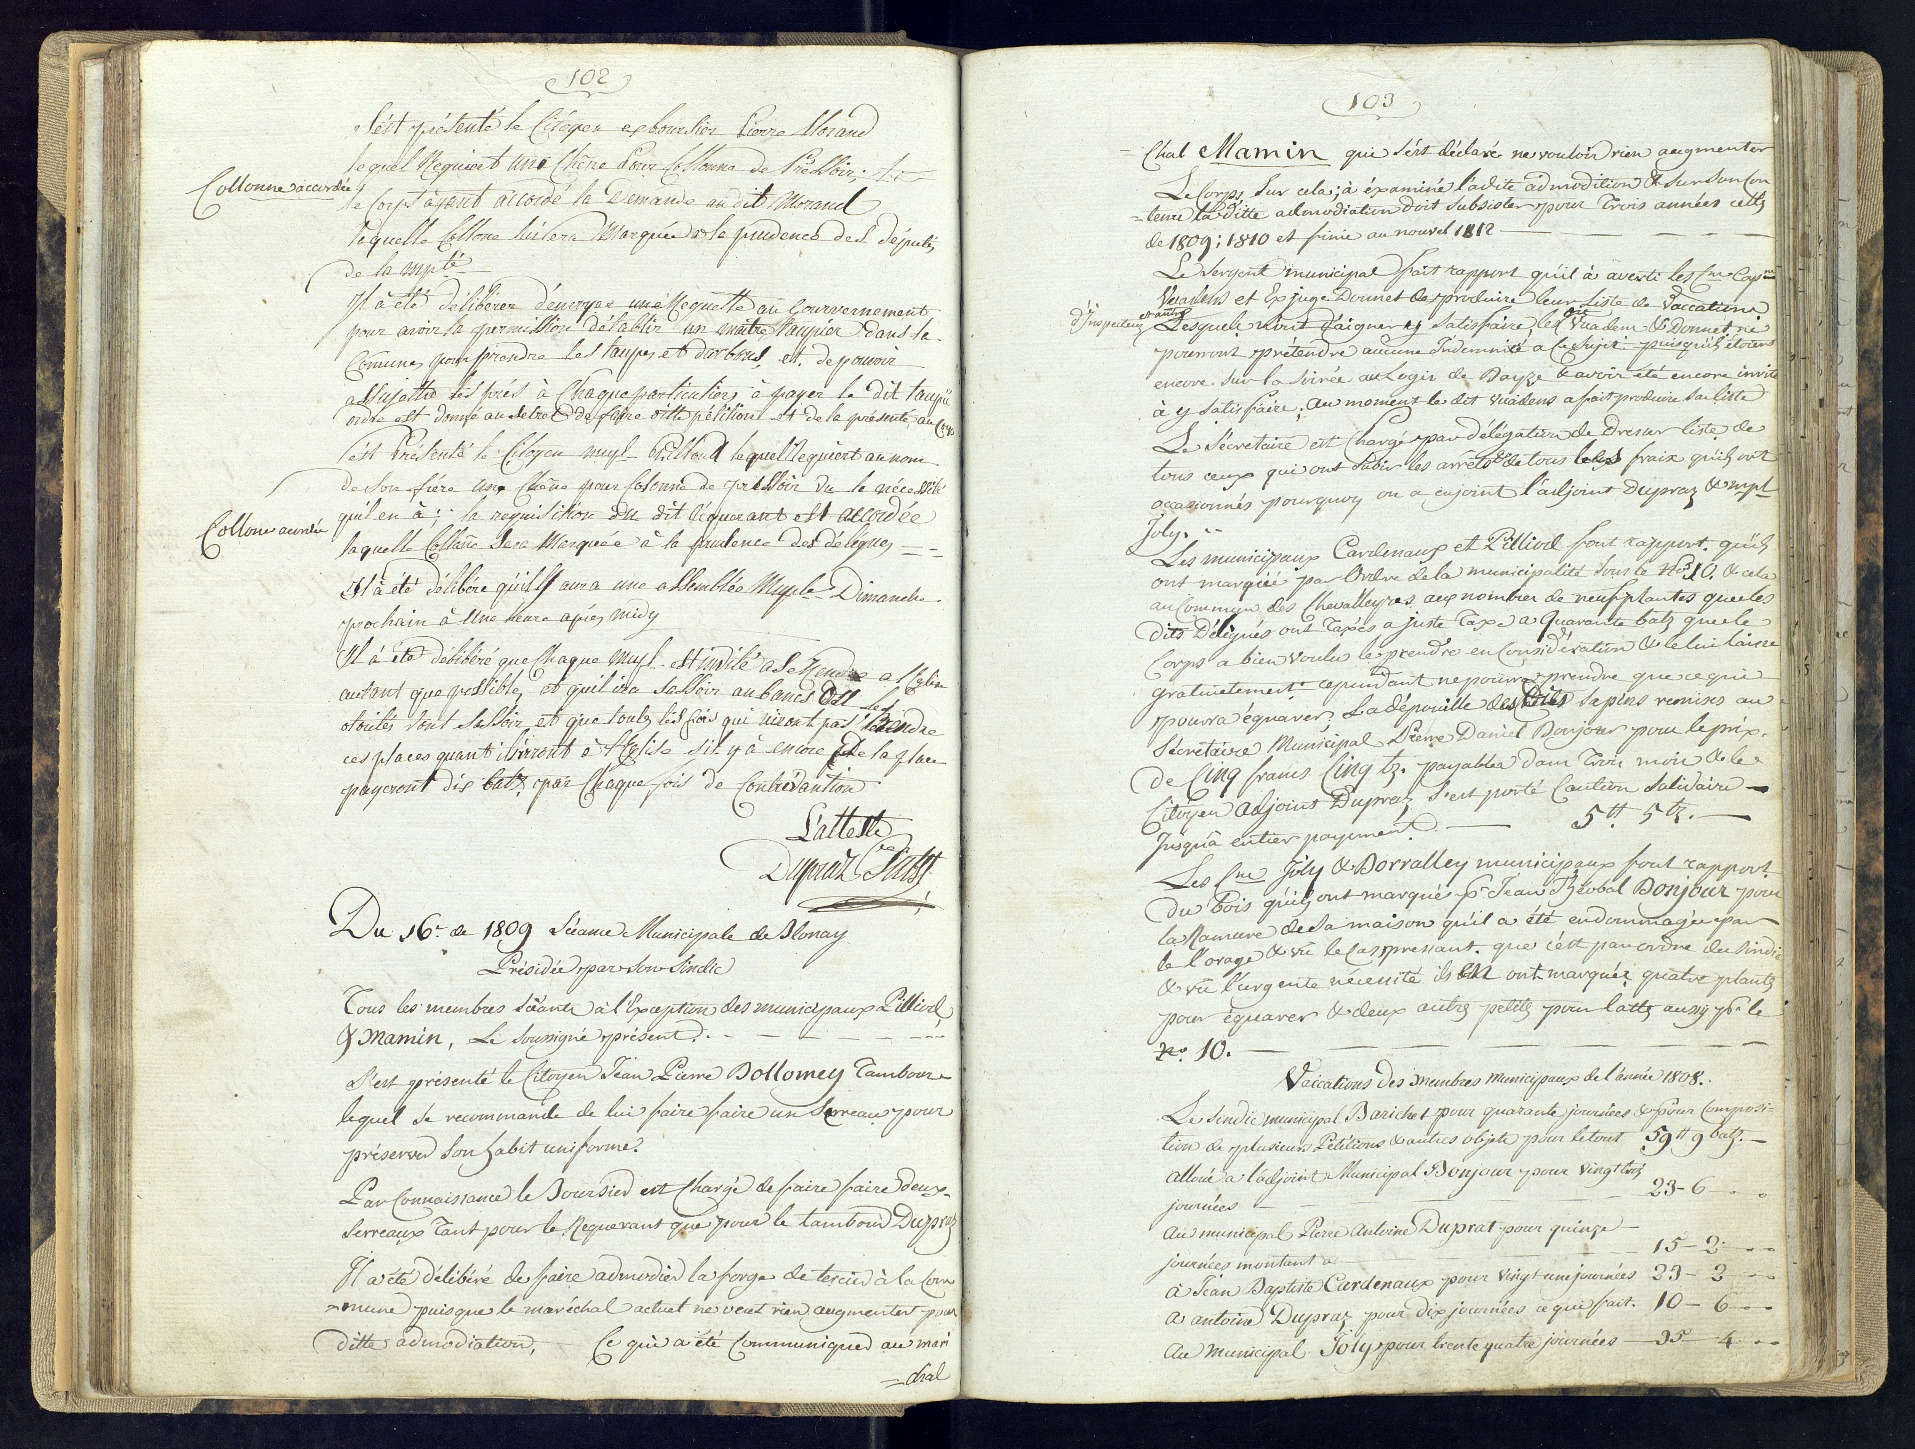 102
s'ést présenté le Citoyen exboursier Pierre Morand
lequel Requiert une Chêne pour Collonne de Préssoir;
Collonne accordée
le Corps ajant accordé la Demande au dit Morand
lequelle Collone lui sera Marquée a la prudence des députés
de la mpté
Il a été délibérer d'envoyer une Requette au Gouvernement
pour avoir la permission d'établir un maître taupier dans la
Comune, pour prendre les taupes et darbons, et de pouvoir
assujettir les prés à Chaque particuliers à payer le dit taupier
ordre est donné au secret de faire ditte pétition et de la présenté au
s'ést Présenté le Citoyen mupl Pillioud lequel Requiert au nom
de son frére une Chêne pour Colonne de préssoir vu le nécessité
qu'il en à; la requisition du dit Réquerant est accordée
Collone accordée
laquelle Collone sera Marquée à la prudence des délégués
Il à été délibéré quil y aura une assemblée Muple Dimanche
prochain à Une heure aprés midy
Il à été délibéré que Chaque mupl est invité a se Rendre a l'Eglise
autant que possible, et quil ira sassoir au bancs ou les
otoités sont sassoir, et que toutes les fois qui niront pas prendre
ces places quant il iront à l'Eglise s'il y à encore de la place
payeront dix batz par Chaque fois de Contrévantion
L'atteste
Dupraz Subst
Du 16e de 1809 Séance Municipale de Blonay
Présidée par son Sindic
Tous les membres séants à l'Exception des municipaux Pilliod,
& Mamin, Le soussigné présent.
S'est présenté le Citoyen Jean Pierre Bollomey Tambour
lequel se recommande de lui faire faire un Serreau pour
préserver son habit uniforme.
Par Connaissance le Boursier est Chargé de faire faire deux
Serreaux tant pour le Requerant que pour le tambour Dupraz
Il a été délibéré de faire admodier la forge de tercier à la Com
=mune puisque le maréchal actuel ne veut rien augmenter pour
ditte admodiation, Ce qui a été Communiqué au maré
=chal
103
Chal Mamin qui s'ést déclaré ne vouloir rien augmenter
Le Corps sur cela; à éxaminé ladite admodition & sur son Con
=tenu la ditte admodiation doit subsister pour Trois années cette
de 1809; 1810 et finie au nouvel 1812
Le sergent municipal fait rapport qu'il à averti les Cns Capne
Vuadens et Ex juge Donnet de produire leur liste de Vaccations
d'Inspecteur et autre
Lesquels n'ont daigner y satisfaire, les dit Vuadens & Donnet ne
pourront prétendre aucune Indemnité a ce sujet puisqu'ils étoient
encore sur la soirée au Logis de Bayze & avoir été encore invité
à y satisfaire; au moment le dit Vuadens a fait produire sa liste
Le sécretaire est Chargé par délégation de dresser liste de
tous ceux qui ont subir les arrêts & de tous les fraix quils ont
occasionnés pourquoy on a enjoint l'adjoint Dupraz & mpl
Joly.
Les municipaux Cardenaux et Pilliod font rapport qu'ils
ont marquée par Ordre de la municipalité sous le No 10. & cela
au Commun des Chevalleyres aux nombre de neuf plantes que les
dits Délégués ont Taxés a juste Taxe a Quarante batz que le
Corps a bien voulu le prendre en Considération & le lui laisse
gratuietement cependant ne pourra prendre que ce qui
pourra équarer, La dépouille des dits sapins remises au
sécretaire Municipal Pierre Daniel Bonjour pour le prix
de Cinq francs Cinq tz. payables dans Trois mois & le
Citoyen adjoint Dupraz s'est porté Caution Solidaire
Jusqu'à entier payement. 5tt 5tz.
Les Cns Joly & Borralley municipaux font rapport
du bois qu'ils ont marqués pr Jean Théobal Bonjour pour
la Ramure de sa maison qu'il a été endommagée par
le l'orage & vu le Cas pressant que c'ést par ordre du sindic
& vû l'urgente nécessité ils ont marqués quatre plantes
pour équarer & deux autres petits pour lattes aussy pr le
No. 10.
Vaccations des membres Municipaux de l'année 1808.
Le sindic municipal Barichet pour quarante journées & pour Composi-
tion de plusieurs Pétitions & autres objets pour le tout 59tt 9 batz.
alloué a l'adjoint Municipal Bonjour pour vingt trois
journées 23-6
au municipal Pierre Antoine Duprat pour quinze
journées montant a 15-2
à Jean Baptiste Cardenaux pour vingt une journées 23-2
a antoine Dupraz pour dix journées ce qui fait. 10-6
au Municipal Joly pour trente quatre journées 35-4